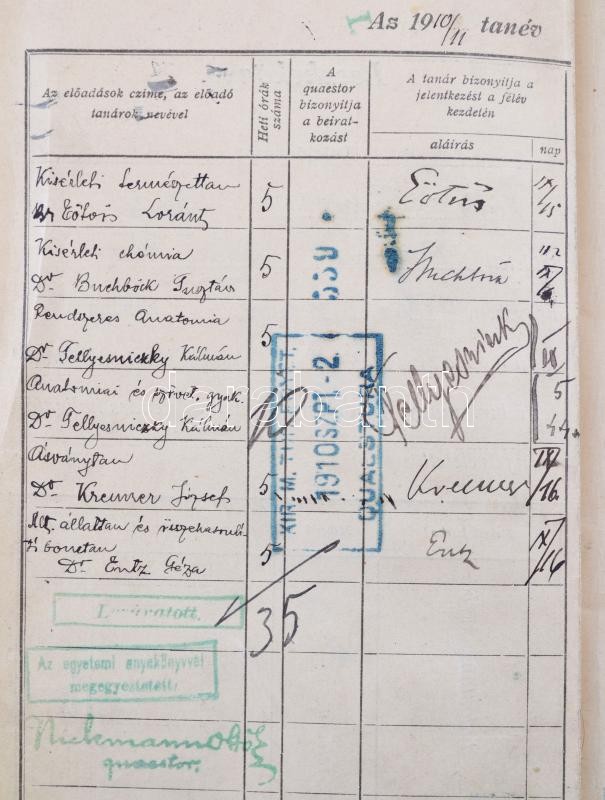 Az 1910/11 tanév
Az előadások czime, az előadó
tanárok nevével
Heti órák
száma
A
quaestor
bizonyitja
a beirat-
kozást
A tanár bizonyitja a
jelentkezést a félév
kezdetén
aláirás
nap
Kisérleti természettan
br Eötvös Loránt
5
Eötvös
IX/15
Kisérleti chémia
Dr Buchböck Gusztáv
5
Buchböck
Rendszeres Anatomia
Dr Tellyesniczky Kálmán
5
Tellyesniczky
Anatomiai és szövet. gyak.
Dr Tellyesniczky Kálmán
10
Ásványtan
Dr Krenner József
5
Krenner
IX/16.
Ált. állattan és összehasonlí-
tó bonctan
Dr Entz Géza
5
Entz
IX/16
35
KIR. M. TUD. EGYET.
1910 SZPT. -2
QUAESTURA
Lezáratott.
Az egyetemi anyakönyvvel
megegyeztetett.
quaestor.
darabanth.com